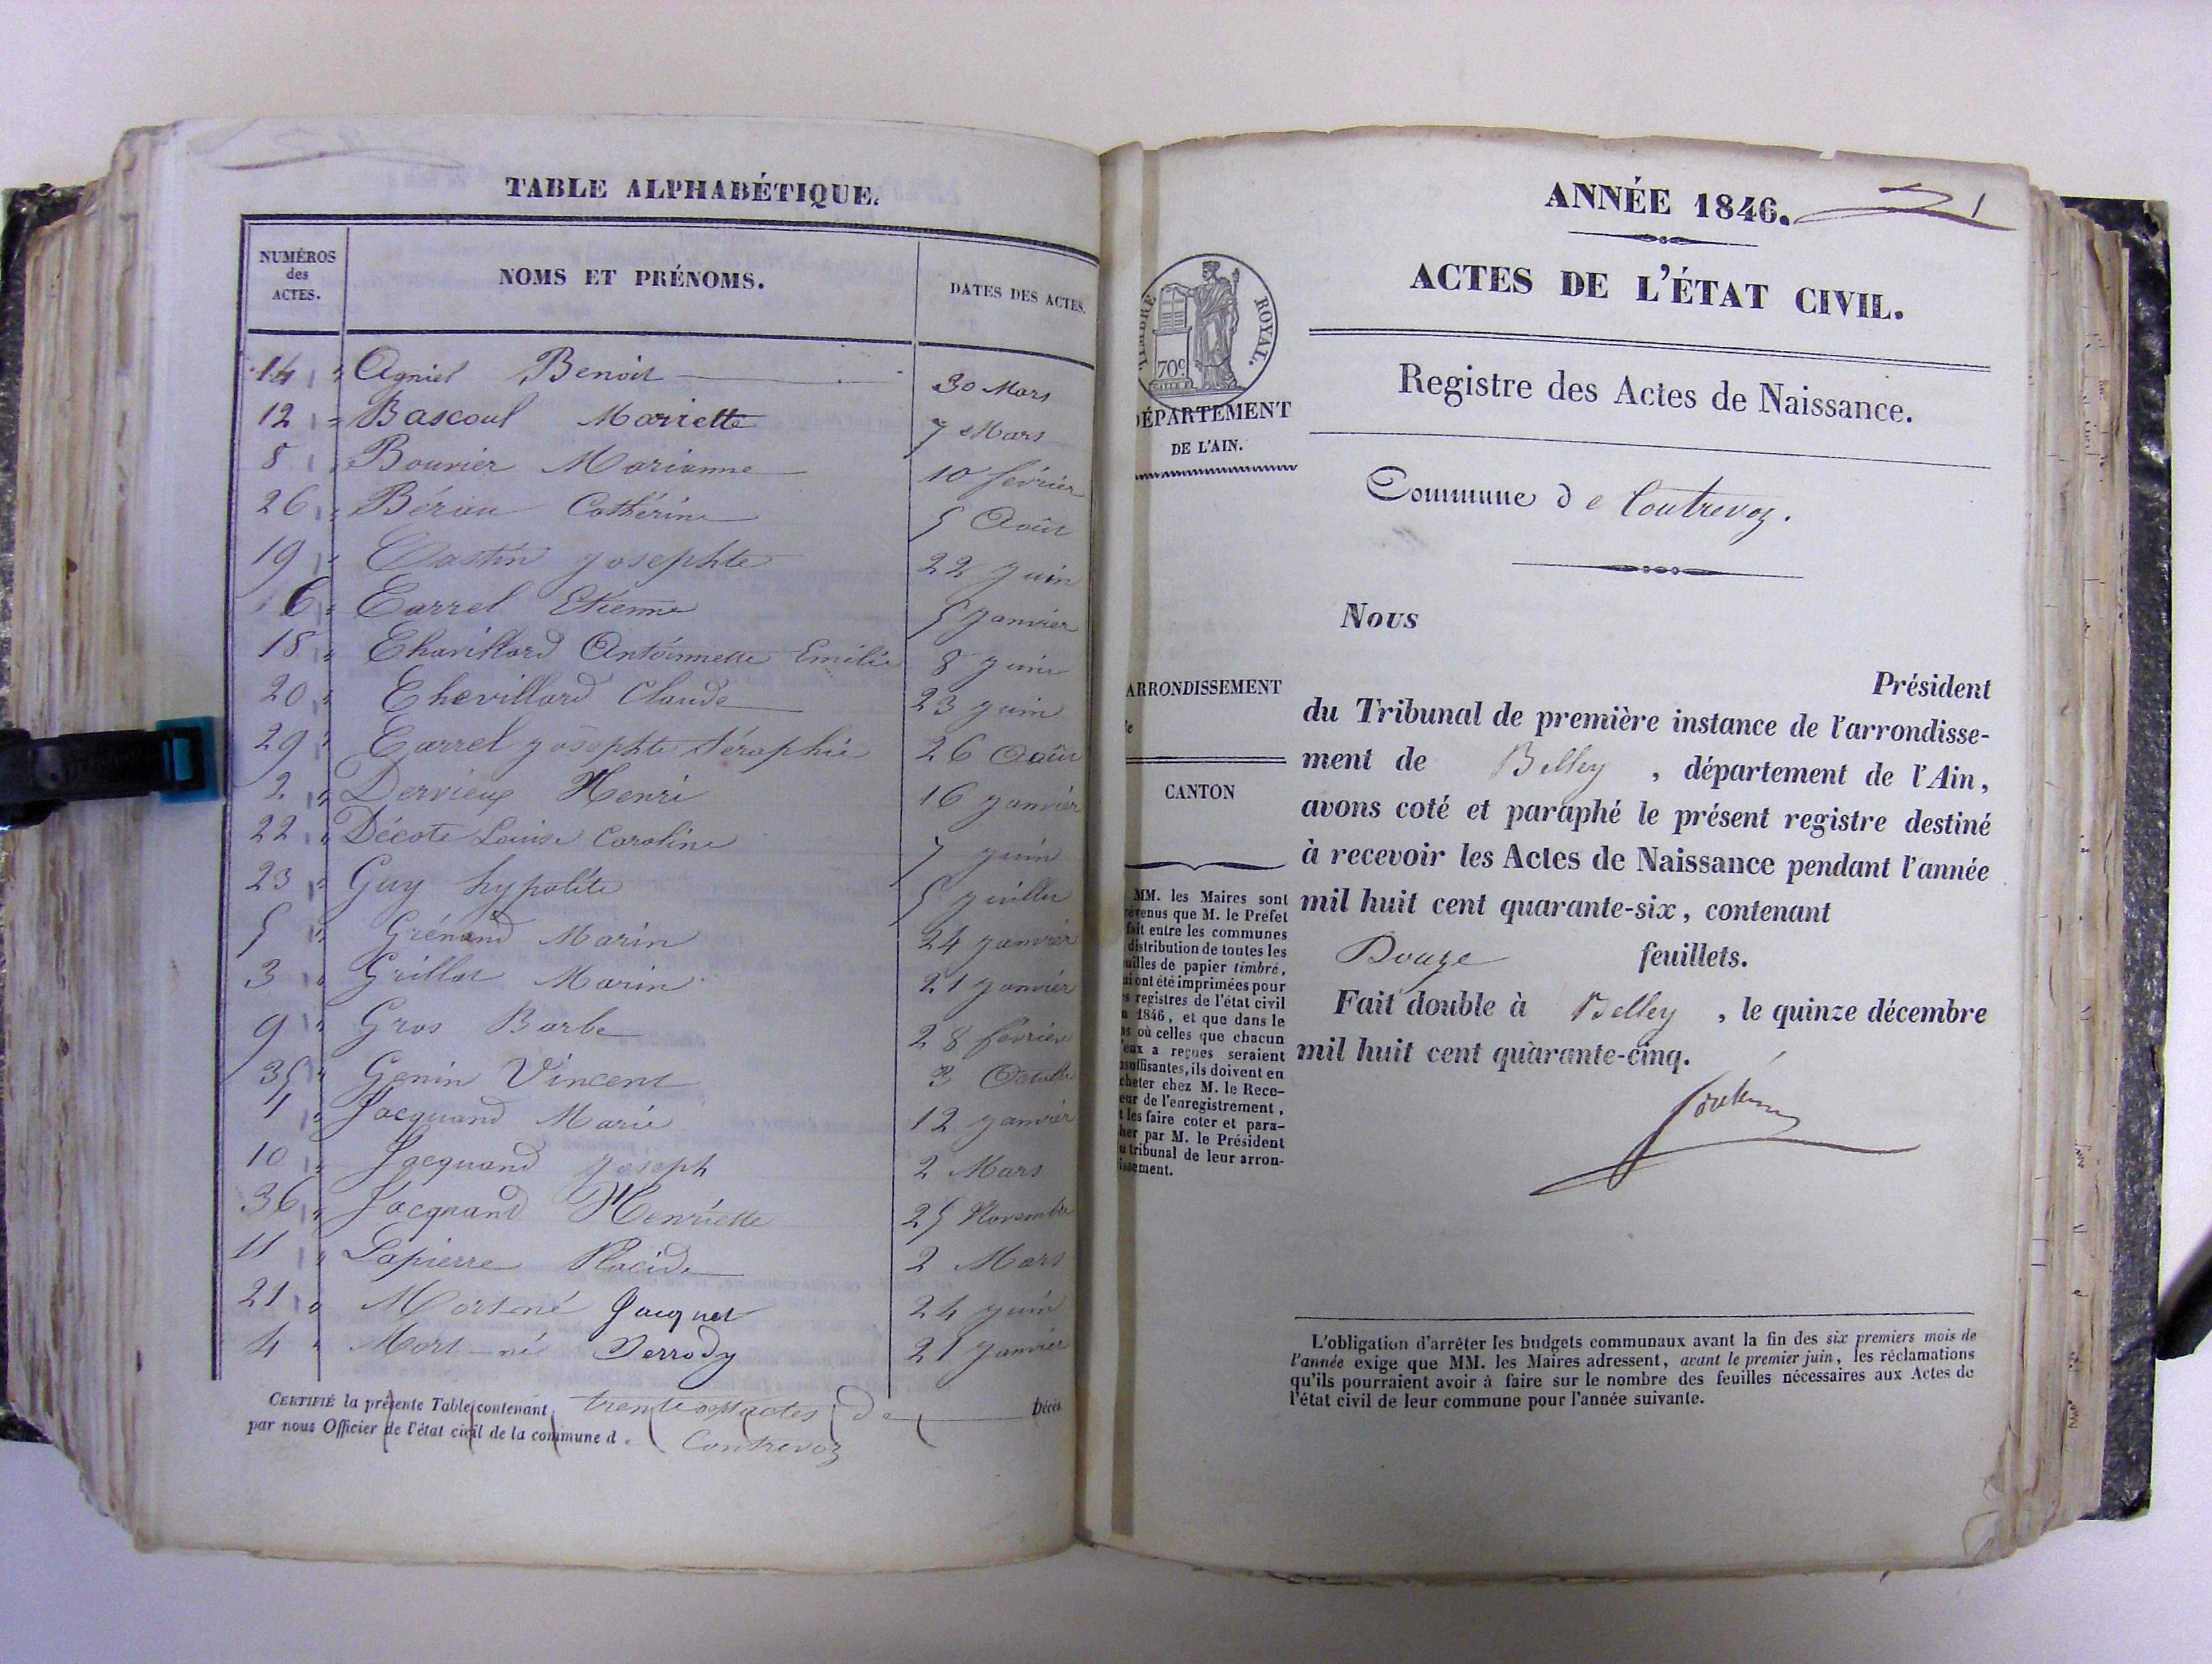 TABLE ALPHABÉTIQUE.
NUMÉROS des ACTES. NOMS ET PRÉNOMS. DATES DES ACTES.
14 " Agniel Benoit 30 Mars
12 " Bascoul Mariette 7 Mars
8 " Bouvier Marianne 10 février
26 " Catherine 5 Août
19 " Castin Josephte 22 Juin
6 " Carrel Etienne 5 Janvier
18 " Chavillard Antoinnette Emélie 8 Juin
20 " Chevillard Claude 23 Juin
29 " Carrel Josephte Séraphie 26 Août
2 " Dervieux Henri 16 Janvier
22 " Décote Louise Caroline 7 Juin
23 " Guy hypolite 5 Juillet
5 " Grénand Marin 24 Janvier
3 " Grillat Marin 21 Janvier
9 " Gros Barbe 28 février
35 " Genin Vincent 3 Octobre
1 " Jacquand Marie 12 Janvier
10 " Jacquand Joseph 2 Mars
36 " Jacquand Henriette 25 Novembre
11 " Lapierre Placide 2 Mars
21 " Mort né Jacquet 24 Juin
4 " Mort-né Perrody 21 Janvier
CERTIFIÉ la présente Table contenant trente sept actes de Décès
par nous Officier de l'état civil de la commune d Contrevoz
ANNÉE 1846. 1
ACTES DE L'ÉTAT CIVIL.
TIMBRE ROYAL.
70c
Registre des Actes de Naissance.
DÉPARTEMENT
DE L'AIN.
Commune de Contrevoz.
Nous
Président
ARRONDISSEMENT
du Tribunal de première instance de l'arrondisse-
ment de Belley, département de l'Ain,
CANTON
avons coté et paraphé le présent registre destiné
à recevoir les Actes de Naissance pendant l'année
mil huit cent quarante-six, contenant
Douze feuillets.
Fait double à Belley, le quinze décembre
mil huit cent quarante-cinq.
MM. les Maires sont
prévenus que M. le Préfet
fait entre les communes
distribution de toutes les
feuilles de papier timbré,
qui ont été imprimées pour
les registres de l'état civil
en 1846, et que dans le
cas où celles que chacun
d'eux a reçues seraient
insuffisantes, ils doivent en
acheter chez M. le Rece-
veur de l'enregistrement,
et les faire coter et para-
pher par M. le Président
du tribunal de leur arron-
dissement.
L'obligation d'arrêter les budgets communaux avant la fin des six premiers mois de
l'année exige que MM. les Maires adressent, avant le premier juin, les réclamations
qu'ils pourraient avoir à faire sur le nombre des feuilles nécessaires aux Actes de
l'état civil de leur commune pour l'année suivante.